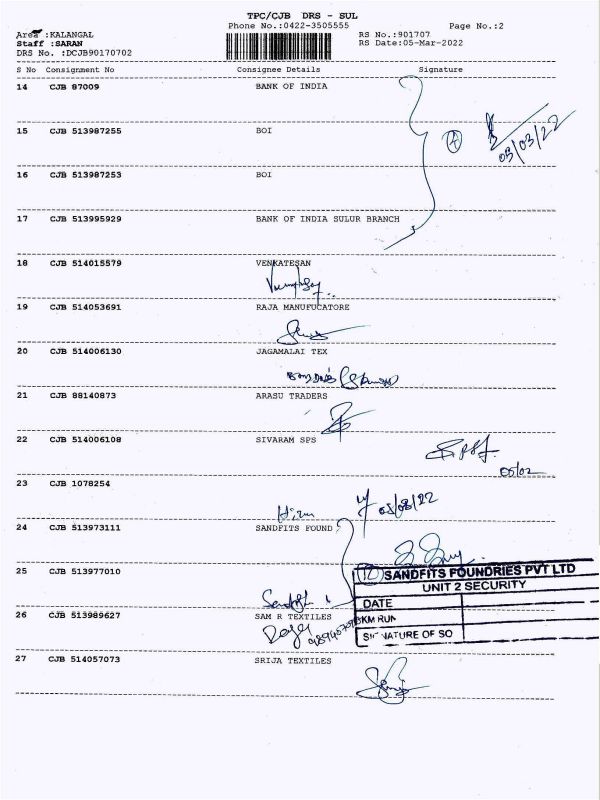 TPC/CJB DRS - SUL
Phone No.:0422-3505555 Page No.:2
Area :KALANGAL RS No.:901707
Staff :SARAN RS Date:05-Mar-2022
DRS No. :DCJB90170702
S No Consignment No Consignee Details Signature
14 CJB 87009 BANK OF INDIA
15 CJB 513987255 BOI
4
05/03/22
16 CJB 513987253 BOI
17 CJB 513995929 BANK OF INDIA SULUR BRANCH
18 CJB 514015579 VENKATESAN
19 CJB 514053691 RAJA MANUFUCATORE
20 CJB 514006130 JAGAMALAI TEX
21 CJB 88140873 ARASU TRADERS
22 CJB 514006108 SIVARAM SPS
23 CJB 1078254
24 CJB 513973111 SANDFITS FOUND
25 CJB 513977010
SANDFITS FOUNDRIES PVT LTD
UNIT 2 SECURITY
DATE
KM RUN
SIGNATURE OF SO
26 CJB 513989627 SAM R TEXTILES
27 CJB 514057073 SRIJA TEXTILES